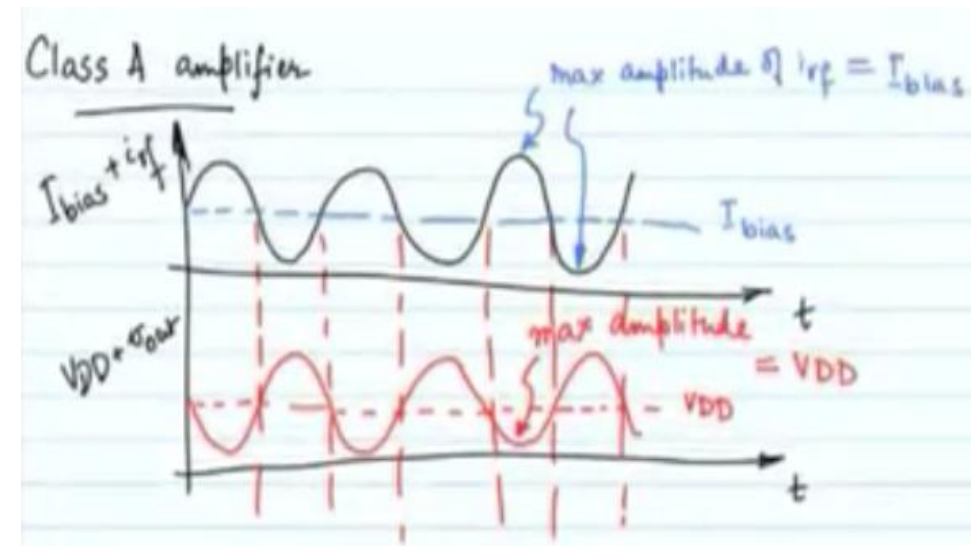 Class A amplifier
max amplitude of irf = Ibias
Ibias + irf
Ibias
t
VDD + vout
max amplitude
= VDD
VDD
t